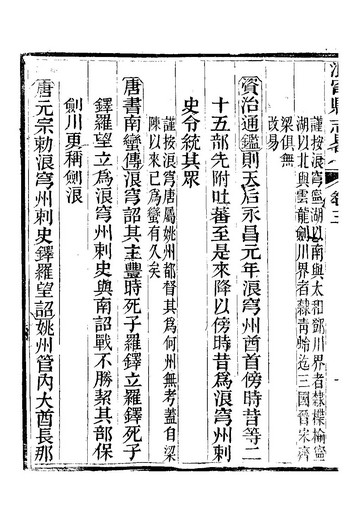 浪穹縣志 卷三
謹按浪穹寧湖以南與太和鄧川界者隸楪榆寧
湖以北與雲龍劍川界者隸青蛉迄三國晉宋齊
梁俱無
改易
資治通鑑則天后永昌元年浪穹州酋首傍時昔等二
十五部先附吐蕃至是來降以傍時昔爲浪穹州刺
史令統其眾
謹按浪穹唐屬姚州都督其爲何州無考蓋自梁
陳以來已爲蠻有久矣
唐書南蠻傳浪穹詔其主豐時死子羅鐸立羅鐸死子
鐸羅望立爲浪穹州刺史與南詔戰不勝挈其部保
劍川更稱劍浪
唐元宗勅浪穹州刺史鐸羅望詔姚州管內大酋長那